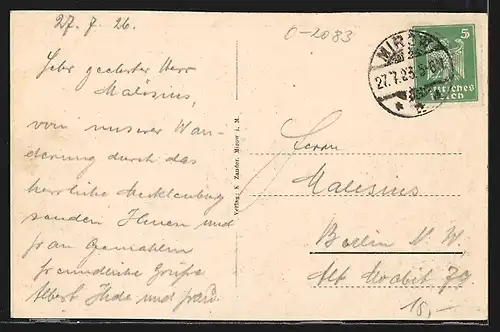 27. 7. 26.
0-2083
Sehr geehrter Herr
Malesius,
von unserer Wan-
derung durch das
herrliche Mecklenburg
senden Ihnen und
Frau Gemahlin
freundliche Grüße
Albert und Frau
Verlag: K. Zander, Mirow i. M.
MIROW
27.7.26
5
Deutsches
Herrn
Malesius
Berlin N. W.
Alt Moabit 79
15,-